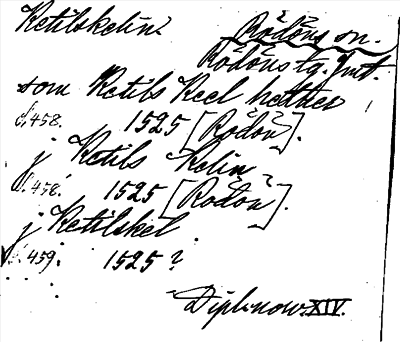 Ketilskelin Rödöns sn.
Rödöns tg. Jmt.
som Ketils Keel hether
S. 458. 1525 [Rödön].
j Ketils Kelin
S. 458. 1525 [Rödön].
j Ketilskel
S. 459. 1525?
Diplnow. XIV.